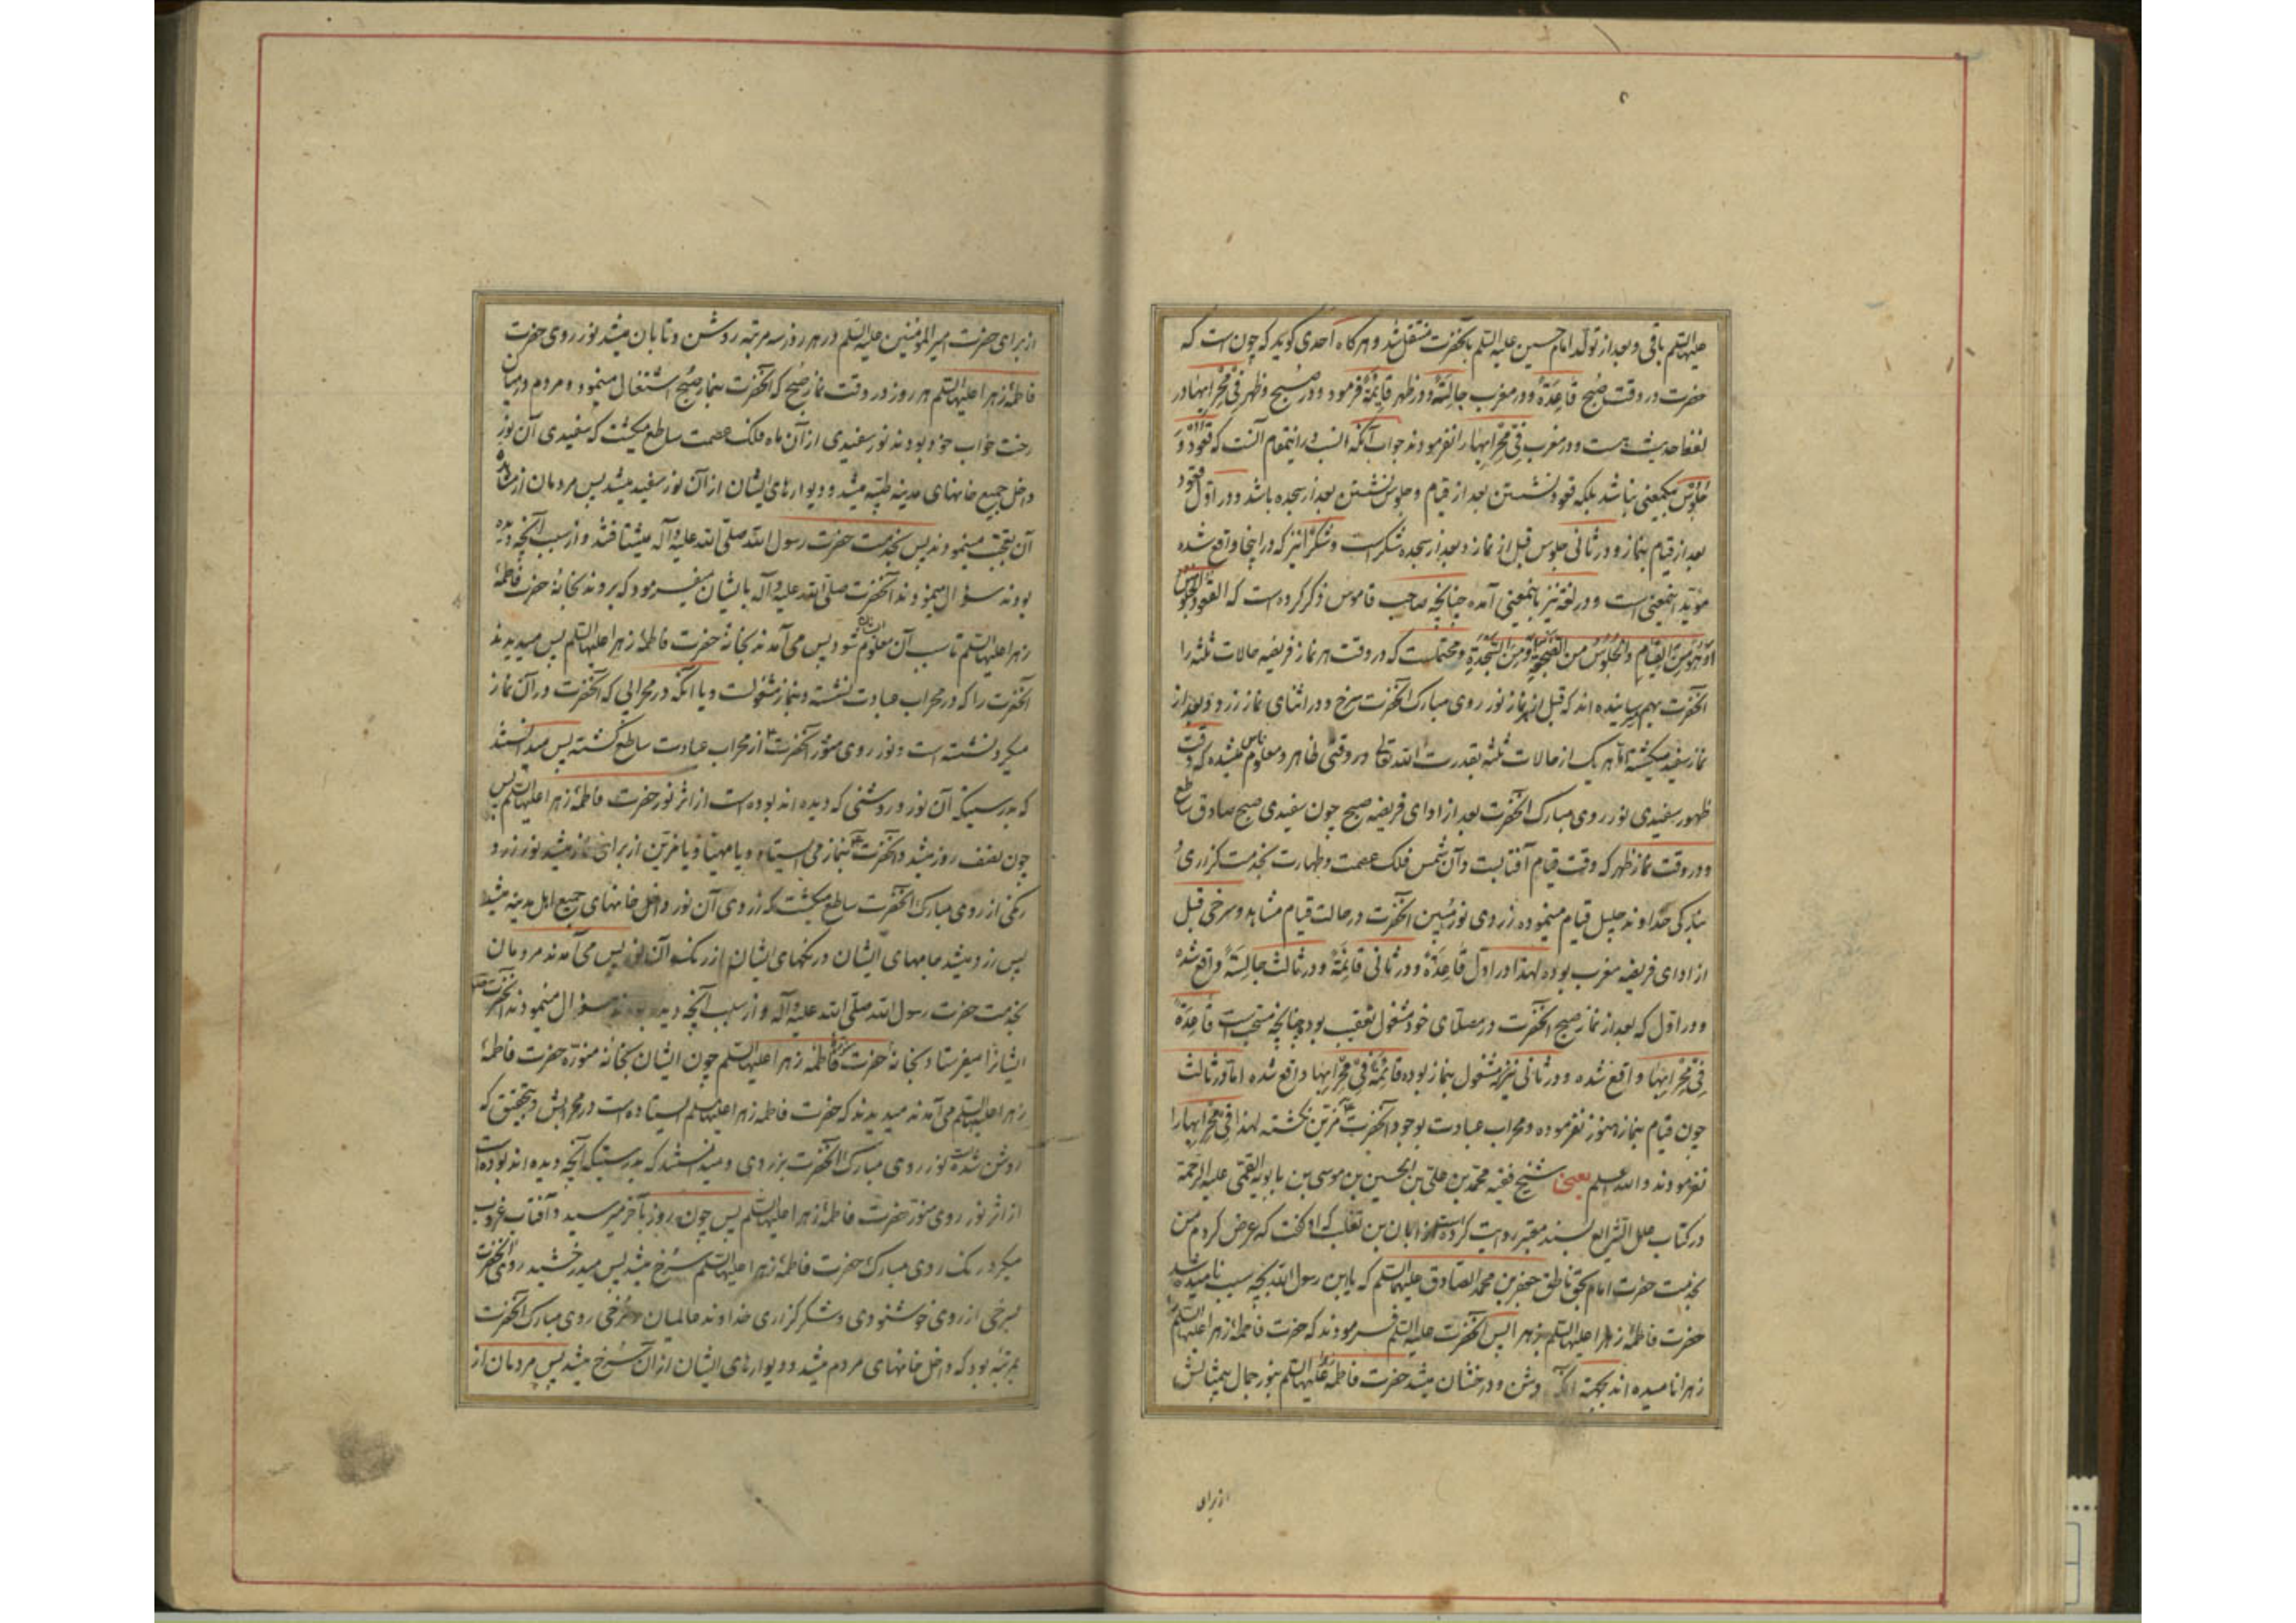 علیها السلم باقی و بعد از تولد امام حسین علیه السلم بآنحضرت منتقل شد و هرگاه احدی گوید که چون است که
حضرت در وقت صبح قاعِدَةٌ و در مغرب جالِسَةٌ و در ظهر قائِمَةٌ فرمود و در صبح و ظهر فی مِحْرابِها در
لفظ حدیث هست و در مغرب فی مِحْرابِها را نفرمودند جواب آنکه انسب در اینمقام آنست که قُعُود وَ
جُلُوس بیکمعنی نباشد بلکه قعود نشستن بعد از قیام و جلوس نشستن بعد از سجده باشد و در اول قعود
بعد از قیام بنماز و در ثانی جلوس قبل از نماز و بعد از سجده شکر است و شکراً نیز که در اینجا واقع شده
مؤید اینمعنی است و در لغة نیز باینمعنی آمده چنانچه صاحب قاموس ذکر کرده است که القعود الجلوس
اَوْ هُوَ مِنَ القِیامِ وَالجُلُوسُ مِنَ الضَّجْعَةِ وَمِنَ السَّجْدَةِ و محتملست که در وقت هر نماز فریضه حالات ثلثه را
آنحضرت بهم میرسانیده اند که قبل از نماز نور روی مبارک آنحضرت سرخ و در اثنای نماز زرد و بعد از
نماز سفید میگشته اما هر یک از حالات ثلثه بقدرت الله تعالی در وقتی ظاهر و معلوم ناس میشده که وقت
ظهور سفیدی نور روی مبارک آنحضرت بعد از ادای فریضه صبح چون سفیدی صبح صادق ساطع
و در وقت نماز ظهر که وقت قیام آفتابست و آن شمس فلک عصمت و طهارت بخدمت گزاری و
بندگی خداوند جلیل قیام مینموده زردی نور مبین آنحضرت در حالت قیام مشاهد و سرخی قبل
از ادای فریضه مغرب بوده لهذا در اول قاعِدَةٌ و در ثانی قائِمَةٌ و در ثالث جالِسَةٌ واقع شده
و در اول که بعد از نماز صبح آنحضرت در مصلای خود مشغول تعقیب بود چنانچه مستحبست قاعِدَةٌ
فی مِحْرابِها واقع شده و در ثانی نیز که مشغول بنماز بوده قائِمَةٌ فی مِحْرابِها واقع شده اما در ثالث
چون قیام بنماز هنوز نفرموده و محراب عبادت بوجود آنحضرت مزین نگشته لهذا فی مِحْرابِها را
نفرمودند والله اعلم یعنی شیخ فقیه محمد بن علی بن الحسین بن موسی بن بابویه القمی علیه الرحمة
در کتاب علل الشرایع بسند معتبر روایت کرده است از ابان بن تغلب که او گفت که عرض کردم من
بخدمت حضرت امام بحق ناطق جعفر بن محمد الصادق علیهما السلم که یا ابن رسول الله بچه سبب نامیده شد
حضرت فاطمهٔ زهرا علیها السلم بزهرا پس آنحضرت علیه السلم فرمودند که حضرت فاطمهٔ زهرا علیها السلم را
زهرا نامیده اند بجهة آنکه روشن و درخشان میشد حضرت فاطمه علیها السلم بنور جمال بیمثالش
از برای
از برای حضرت امیر المؤمنین علیه السلم در هر روز سه مرتبه روشن و تابان میشد نور روی حضرت
فاطمهٔ زهرا علیها السلم هر روز در وقت نماز صبح که آنحضرت بنماز صبح اشتغال مینمود و مردم در میان
رخت خواب خود بودند نور سفیدی از آن ماه فلک عصمت ساطع میگشت که سفیدی آن نور
داخل جمیع خانهای مدینه طیبه میشد و دیوارهای ایشان از آن نور سفید میشد پس مردمان از مشاهده
آن تعجب مینمودند پس بخدمت حضرت رسول الله صلی الله علیه و آله میشتافتند و از سبب آنچه دیده
بودند سؤال مینمودند آنحضرت صلی الله علیه و آله بایشان میفرمود که بروند بخانهٔ حضرت فاطمهٔ
زهرا علیها السلم تا سبب آن معلوم ایشان شود پس می آمدند بخانهٔ حضرت فاطمهٔ زهرا علیها السلم پس میدیدند
آنحضرت را که در محراب عبادت نشسته و بنماز مشغولست و یا آنکه در محرابی که آنحضرت در آن نماز
میکرد نشسته است و نور روی منور آنحضرت از محراب عبادت ساطع گشته پس میدانستند
که بدرستیکه آن نور و روشنی که دیده اند بوده است از اثر نور حضرت فاطمهٔ زهرا علیها السلم پس
چون نصف روز میشد و آنحضرت بنماز می ایستاد و یا مهیا و یا مزین از برای نماز میشد نور زرد
رنگی از روی مبارک آنحضرت ساطع میگشت که زردی آن نور داخل خانهای جمیع اهل مدینه میشد
پس زرد میشد جامهای ایشان و رنگهای ایشان از رنگ آن نور پس می آمدند مردمان
بخدمت حضرت رسول الله صلی الله علیه و آله و از سبب آنچه دیده بودند سؤال مینمودند آنحضرت
ایشانرا میفرستاد بخانهٔ حضرت فاطمه زهرا علیها السلم چون ایشان بخانه منوره حضرت فاطمهٔ
زهرا علیها السلم می آمدند میدیدند که حضرت فاطمه زهرا علیها السلم ایستاده است در محرابش و بتحقیق که
روشن شده است نور روی مبارک آنحضرت بزردی و میدانستند که بدرستیکه آنچه دیده اند بوده است
از اثر نور روی منور حضرت فاطمهٔ زهرا علیها السلم پس چون روز بآخر میرسید و آفتاب غروب
میکرد رنک روی مبارک حضرت فاطمهٔ زهرا علیها السلم سرخ میشد پس میدرخشید روی آنحضرت
بسرخی از روی خوشنودی و شکر گزاری خداوند عالمیان و سرخی روی مبارک آنحضرت
بمرتبهٔ بود که داخل خانهای مردم میشد و دیوارهای ایشان از آن سرخ میشد پس مردمان از